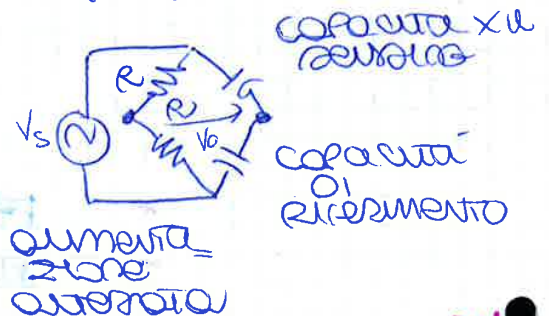 capacità x il
sensing
R
R
Vs
Vo
capacità
di
riferimento
alimenta-
zione
alternata